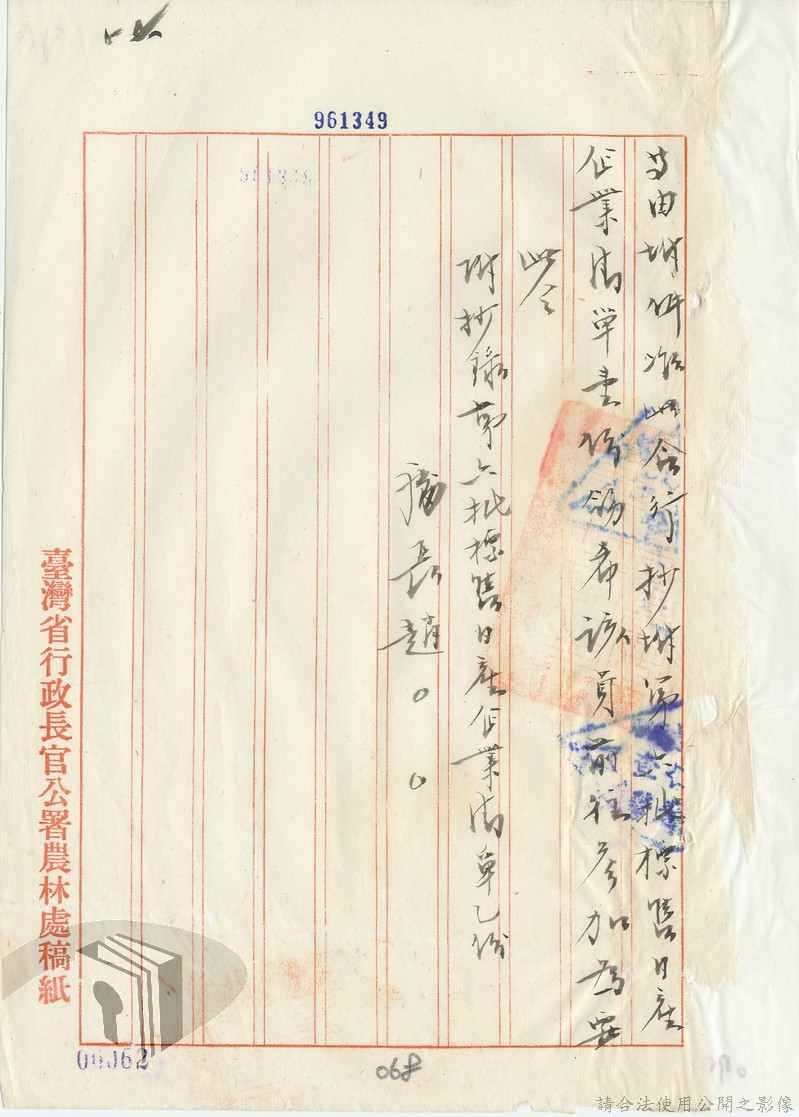 961349
等由附件准此合行抄附第六批標售日產
企業清單壹份仰希該員前往參加為要
此令
附抄錄第六批標售日產企業清單乙份
長趙○○
臺灣省行政長官公署農林處稿紙
00062
068
請合法使用公開之影像